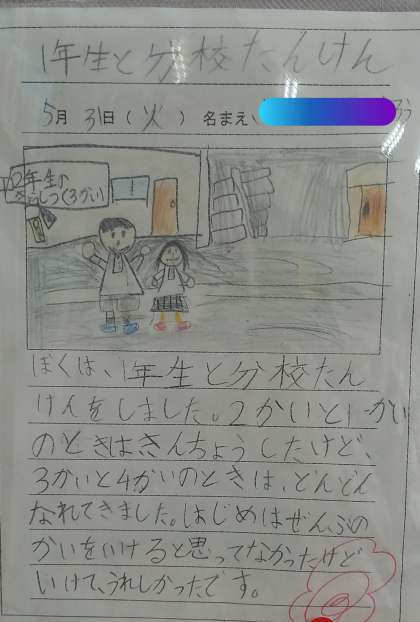 1年生と分校たんけん
5月31日(火) 名まえ
2年生の
きょうしつ(3かい)
ぼくは、1年生と分校たん
けんをしました。2かいと1かい
のときはきんちょうしたけど、
3かいと4かいのときは、どんどん
なれてきました。はじめはぜんぶの
かいをいけると思ってなかったけど
いけて、うれしかったです。